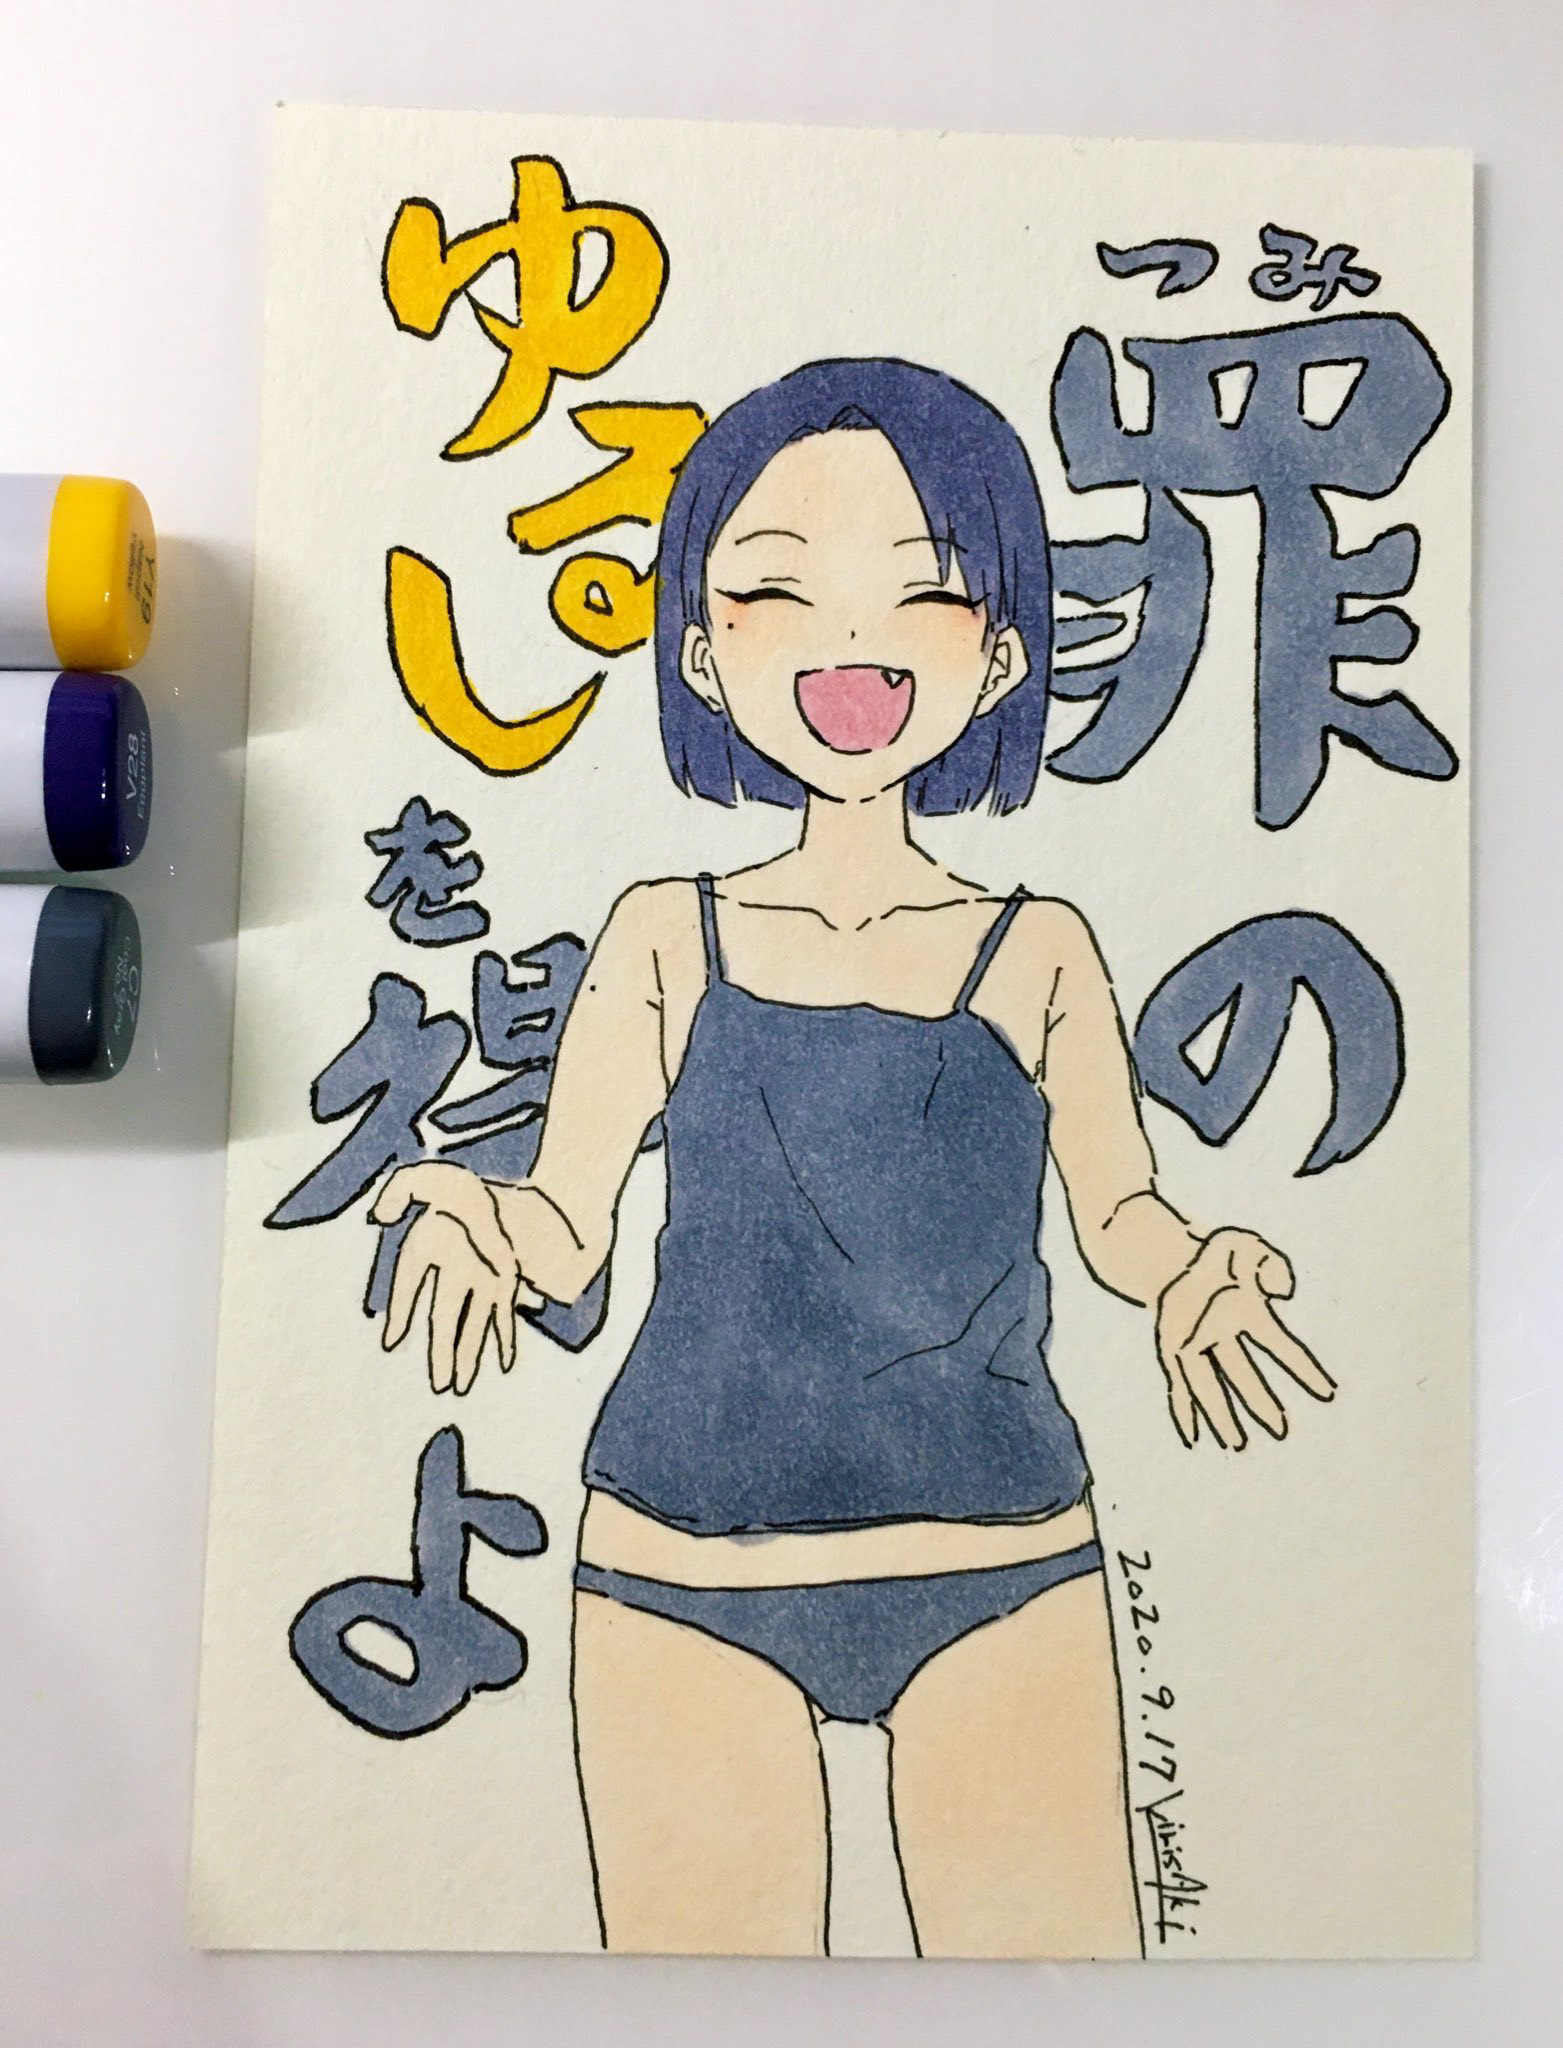 つみ
罪の
ゆるしを得よ
2020.9.17 KirisAki
Y19
Napoli
Yellow
V28
Eggplant
C7
Cool Gray
No.7